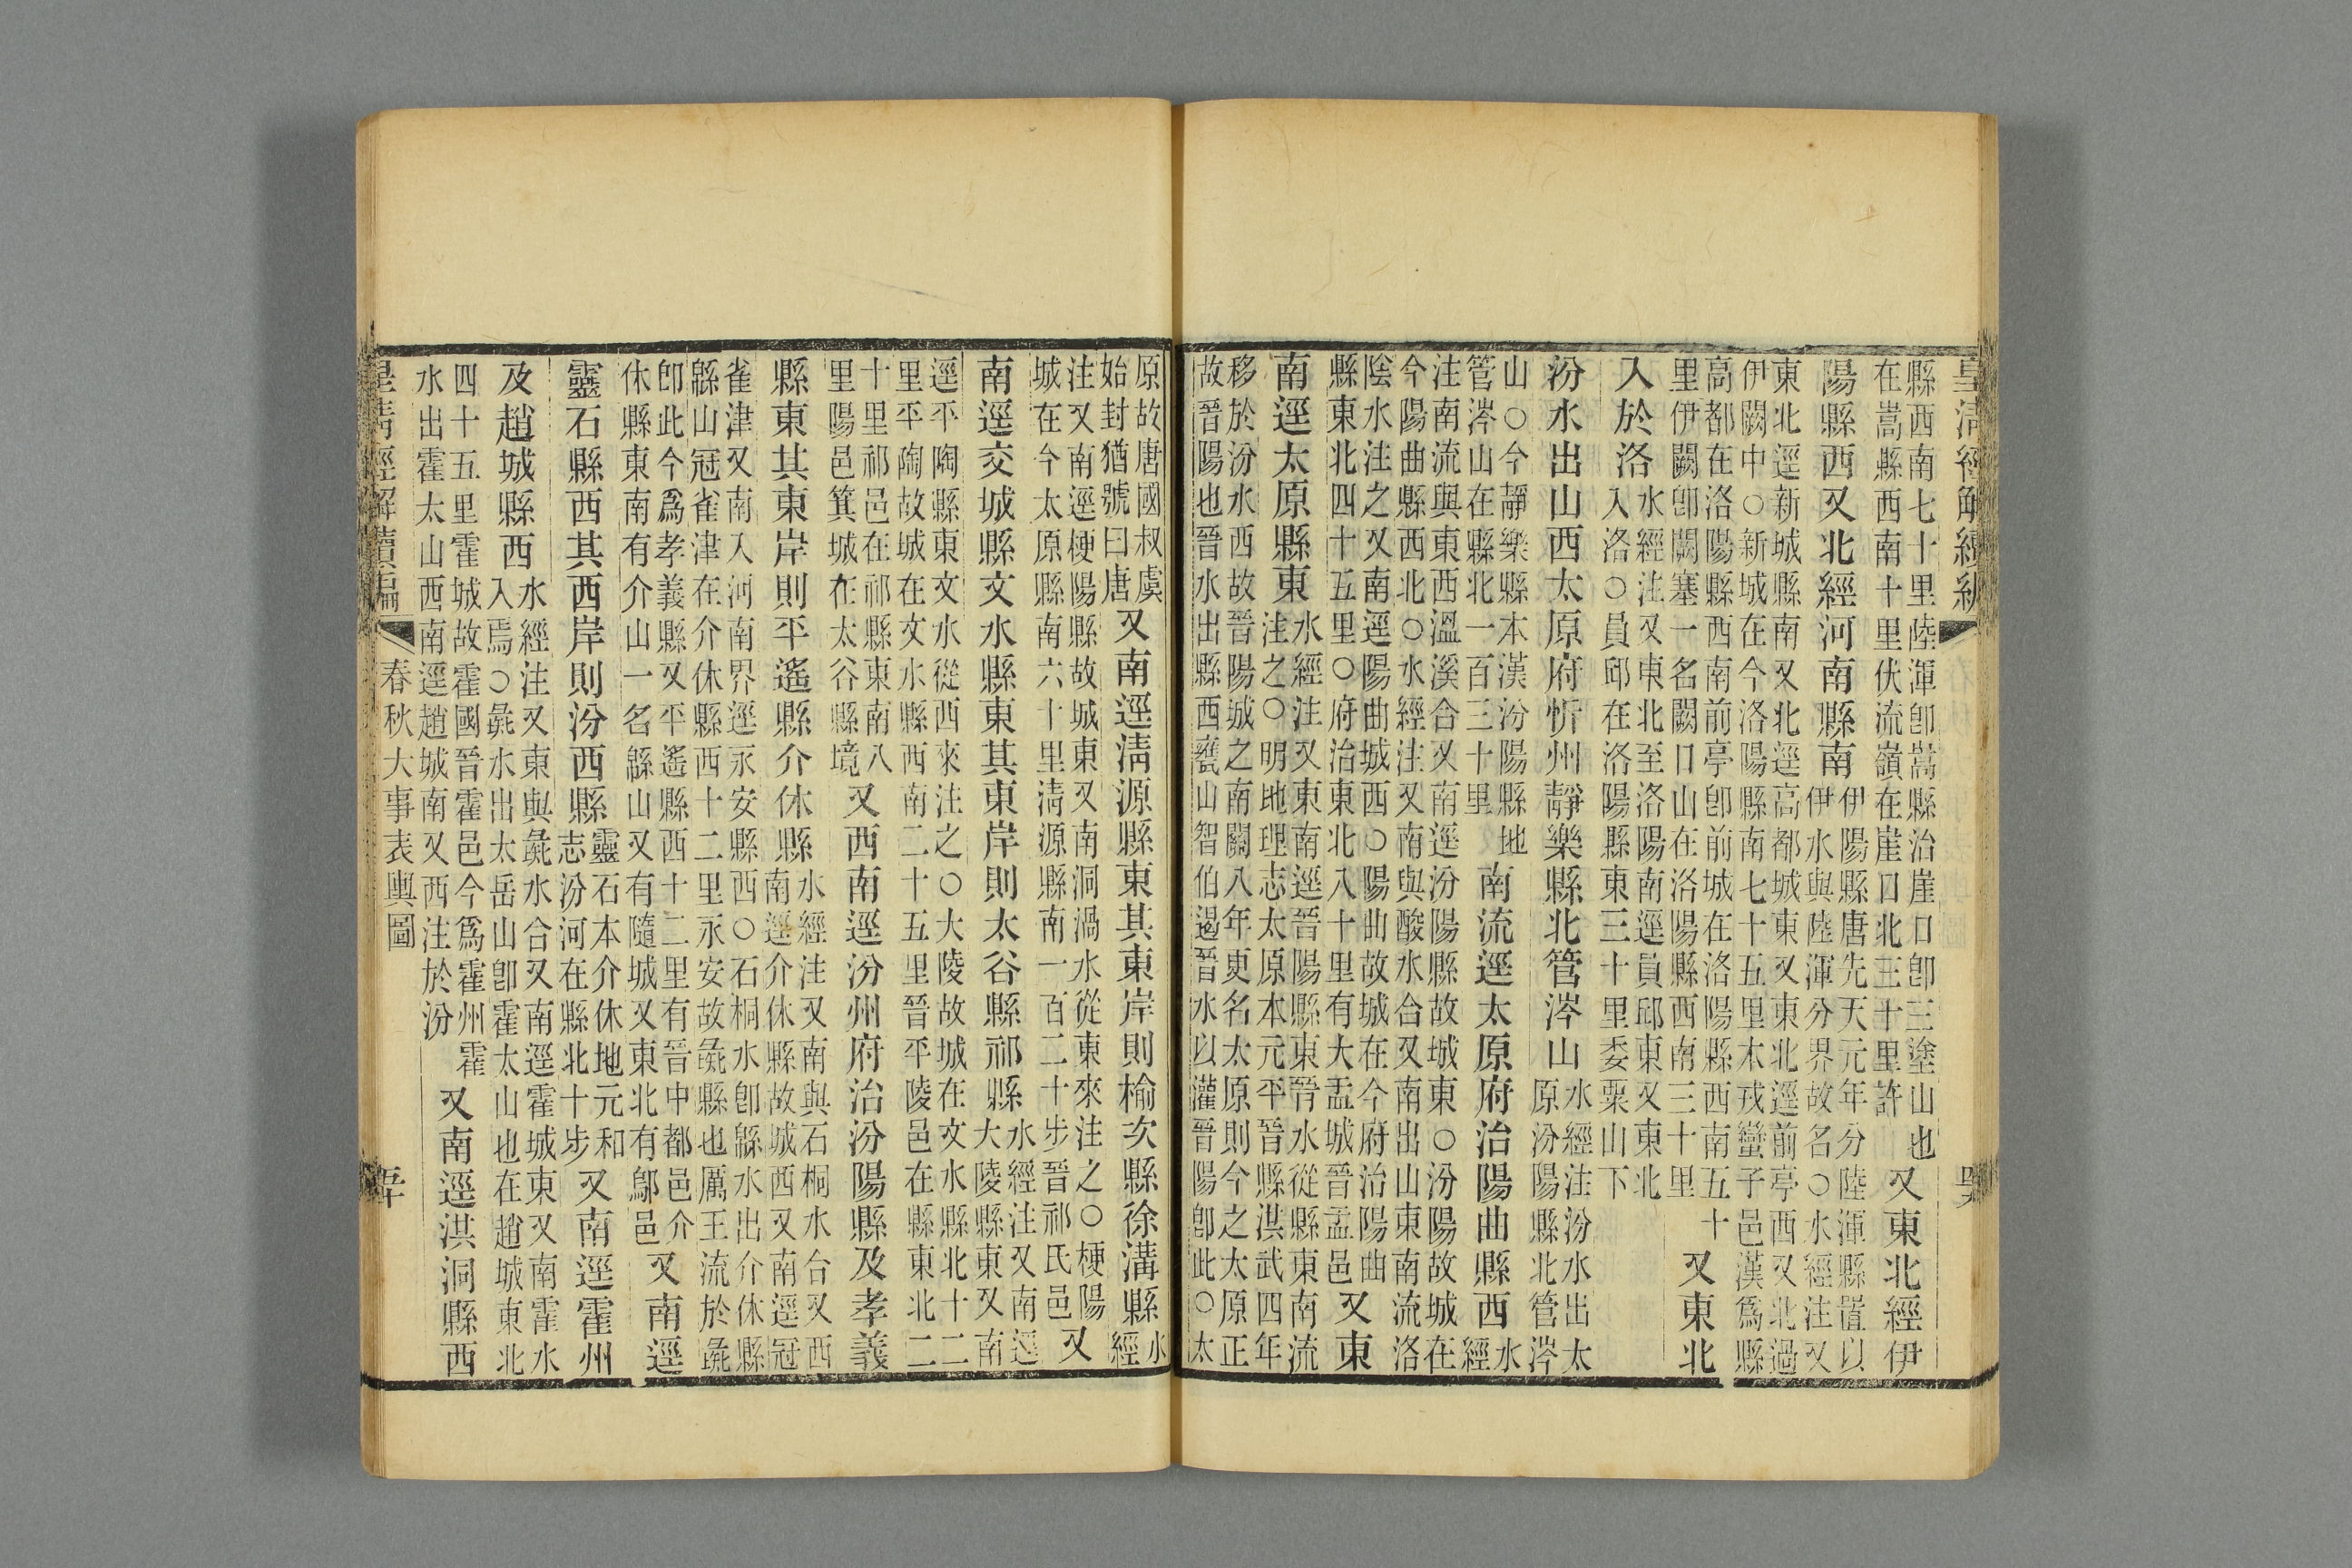 皇清經解續編
縣西南七十里陸渾卽嵩縣治崖口卽三塗山也
在嵩縣西南十里伏流嶺在崖口北三十里許
又東北經伊
陽縣西又北經河南縣南
伊陽縣唐先天元年分陸渾縣置以
伊水與陸渾分界故名○水經注又
東北逕新城縣南又北逕高都城東又東北逕前亭西又北過
伊闕中○新城在今洛陽縣南七十五里本戎蠻子邑漢爲縣
高都在洛陽縣西南前亭卽前城在洛陽縣西南五十
里伊闕卽闕塞一名闕口山在洛陽縣西南三十里
又東北
入於洛
水經注又東北至洛陽南逕員邱東又東北
入洛○員邱在洛陽縣東三十里委粟山下
汾水出山西太原府忻州靜樂縣北管涔山
水經注汾水出太
原汾陽縣北管涔
山○今靜樂縣本漢汾陽縣地
管涔山在縣北一百三十里
南流逕太原府治陽曲縣西
水
經
注南流與東西溫溪合又南逕汾陽縣故城東○汾陽故城在
今陽曲縣西北○水經注又南與酸水合又南出山東南流洛
陰水注之又南逕陽曲城西○陽曲故城在今府治陽曲
縣東北四十五里○府治東北八十里有大盂城晉盂邑
又東
南逕太原縣東
水經注又東南逕晉陽縣東晉水從縣東南流
注之○明地理志太原本元平晉縣洪武四年
移於汾水西故晉陽城之南關八年更名太原則今之太原正
故晉陽也晉水出縣西甕山智伯遏晉水以灌晉陽卽此○太
原故唐國叔虞
始封猶號曰唐
又南逕淸源縣東其東岸則榆次縣徐溝縣
水
經
注又南逕梗陽縣故城東又南洞渦水從東來注之○梗陽
城在今太原縣南六十里淸源縣南一百二十步晉祁氏邑
又
南逕交城縣文水縣東其東岸則太谷縣祁縣
水經注又南逕
大陵縣東又南
逕平陶縣東文水從西來注之○大陵故城在文水縣北十二
里平陶故城在文水縣西南二十五里晉平陵邑在縣東北二
十里祁邑在祁縣東南八
里陽邑箕城在太谷縣境
又西南逕汾州府治汾陽縣及孝義
縣東其東岸則平遙縣介休縣
水經注又南與石桐水合又西
南逕介休縣故城西又南逕冠
雀津又南入河南界逕永安縣西○石桐水卽緜水出介休縣
緜山冠雀津在介休縣西十二里永安故彘縣也厲王流於彘
卽此今爲孝義縣又平遙縣西十二里有晉中都邑介
休縣東南有介山一名緜山又有隨城又東北有鄔邑
又南逕
靈石縣西其西岸則汾西縣
靈石本介休地元和
志汾河在縣北十步
又南逕霍州
及趙城縣西
水經注又東與彘水合又南逕霍城東又南霍水
入焉○彘水出太岳山卽霍太山也在趙城東北
四十五里霍城故霍國晉霍邑今爲霍州霍
水出霍太山西南逕趙城南又西注於汾
又南逕洪洞縣西
皇淸經解續編
春秋大事表輿圖